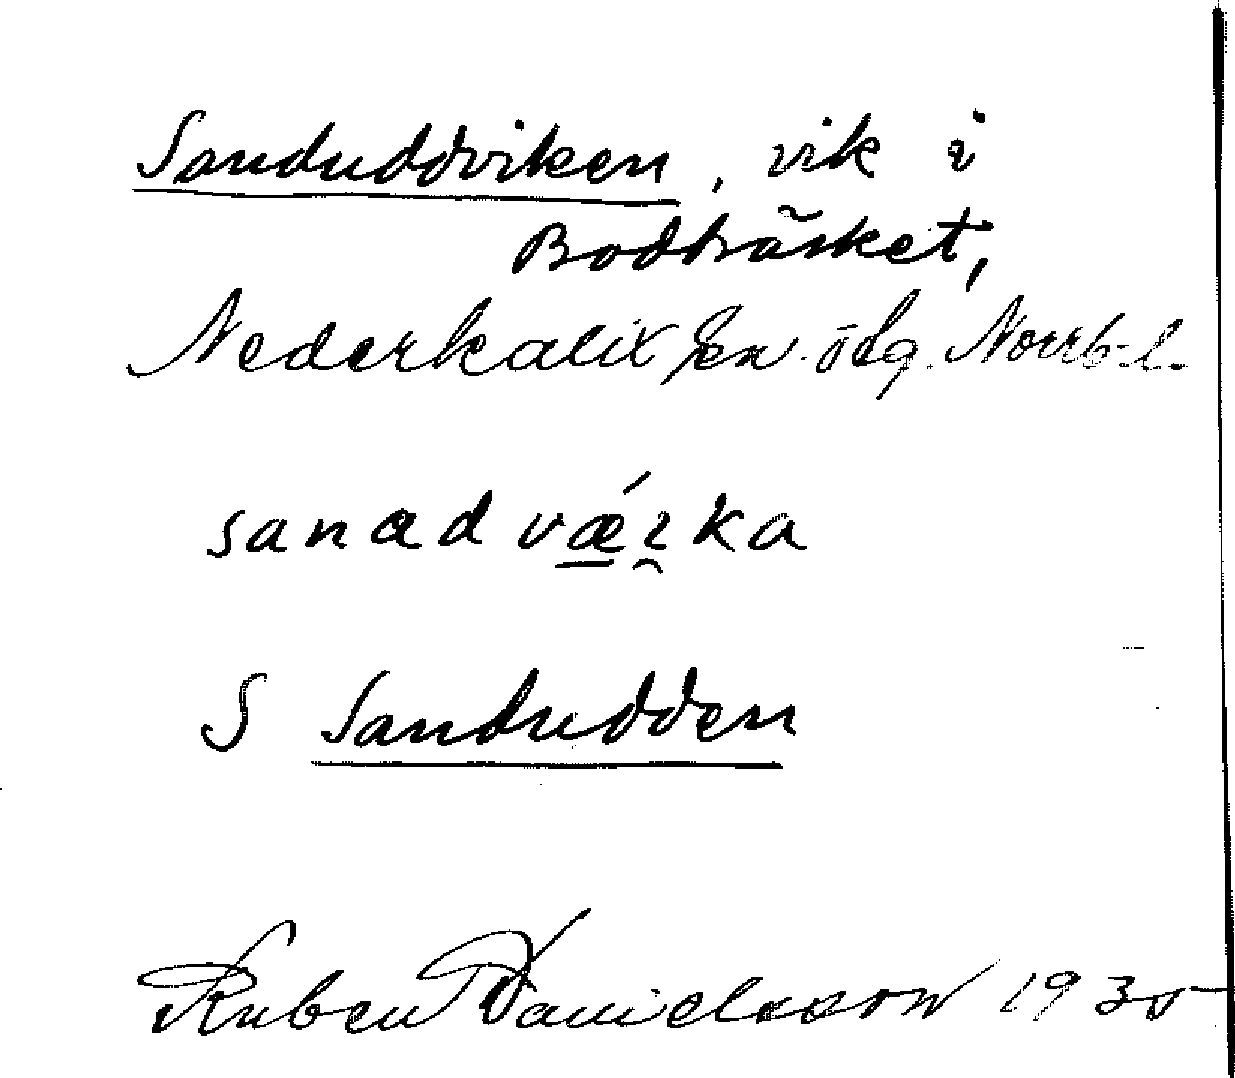 Sanduddviken, vik i
Bodträsket,
Nederkalix sn. ö dg. Norrb. l.
sanadvǽɩka
S Sandudden
Ruben Danielsson 1935